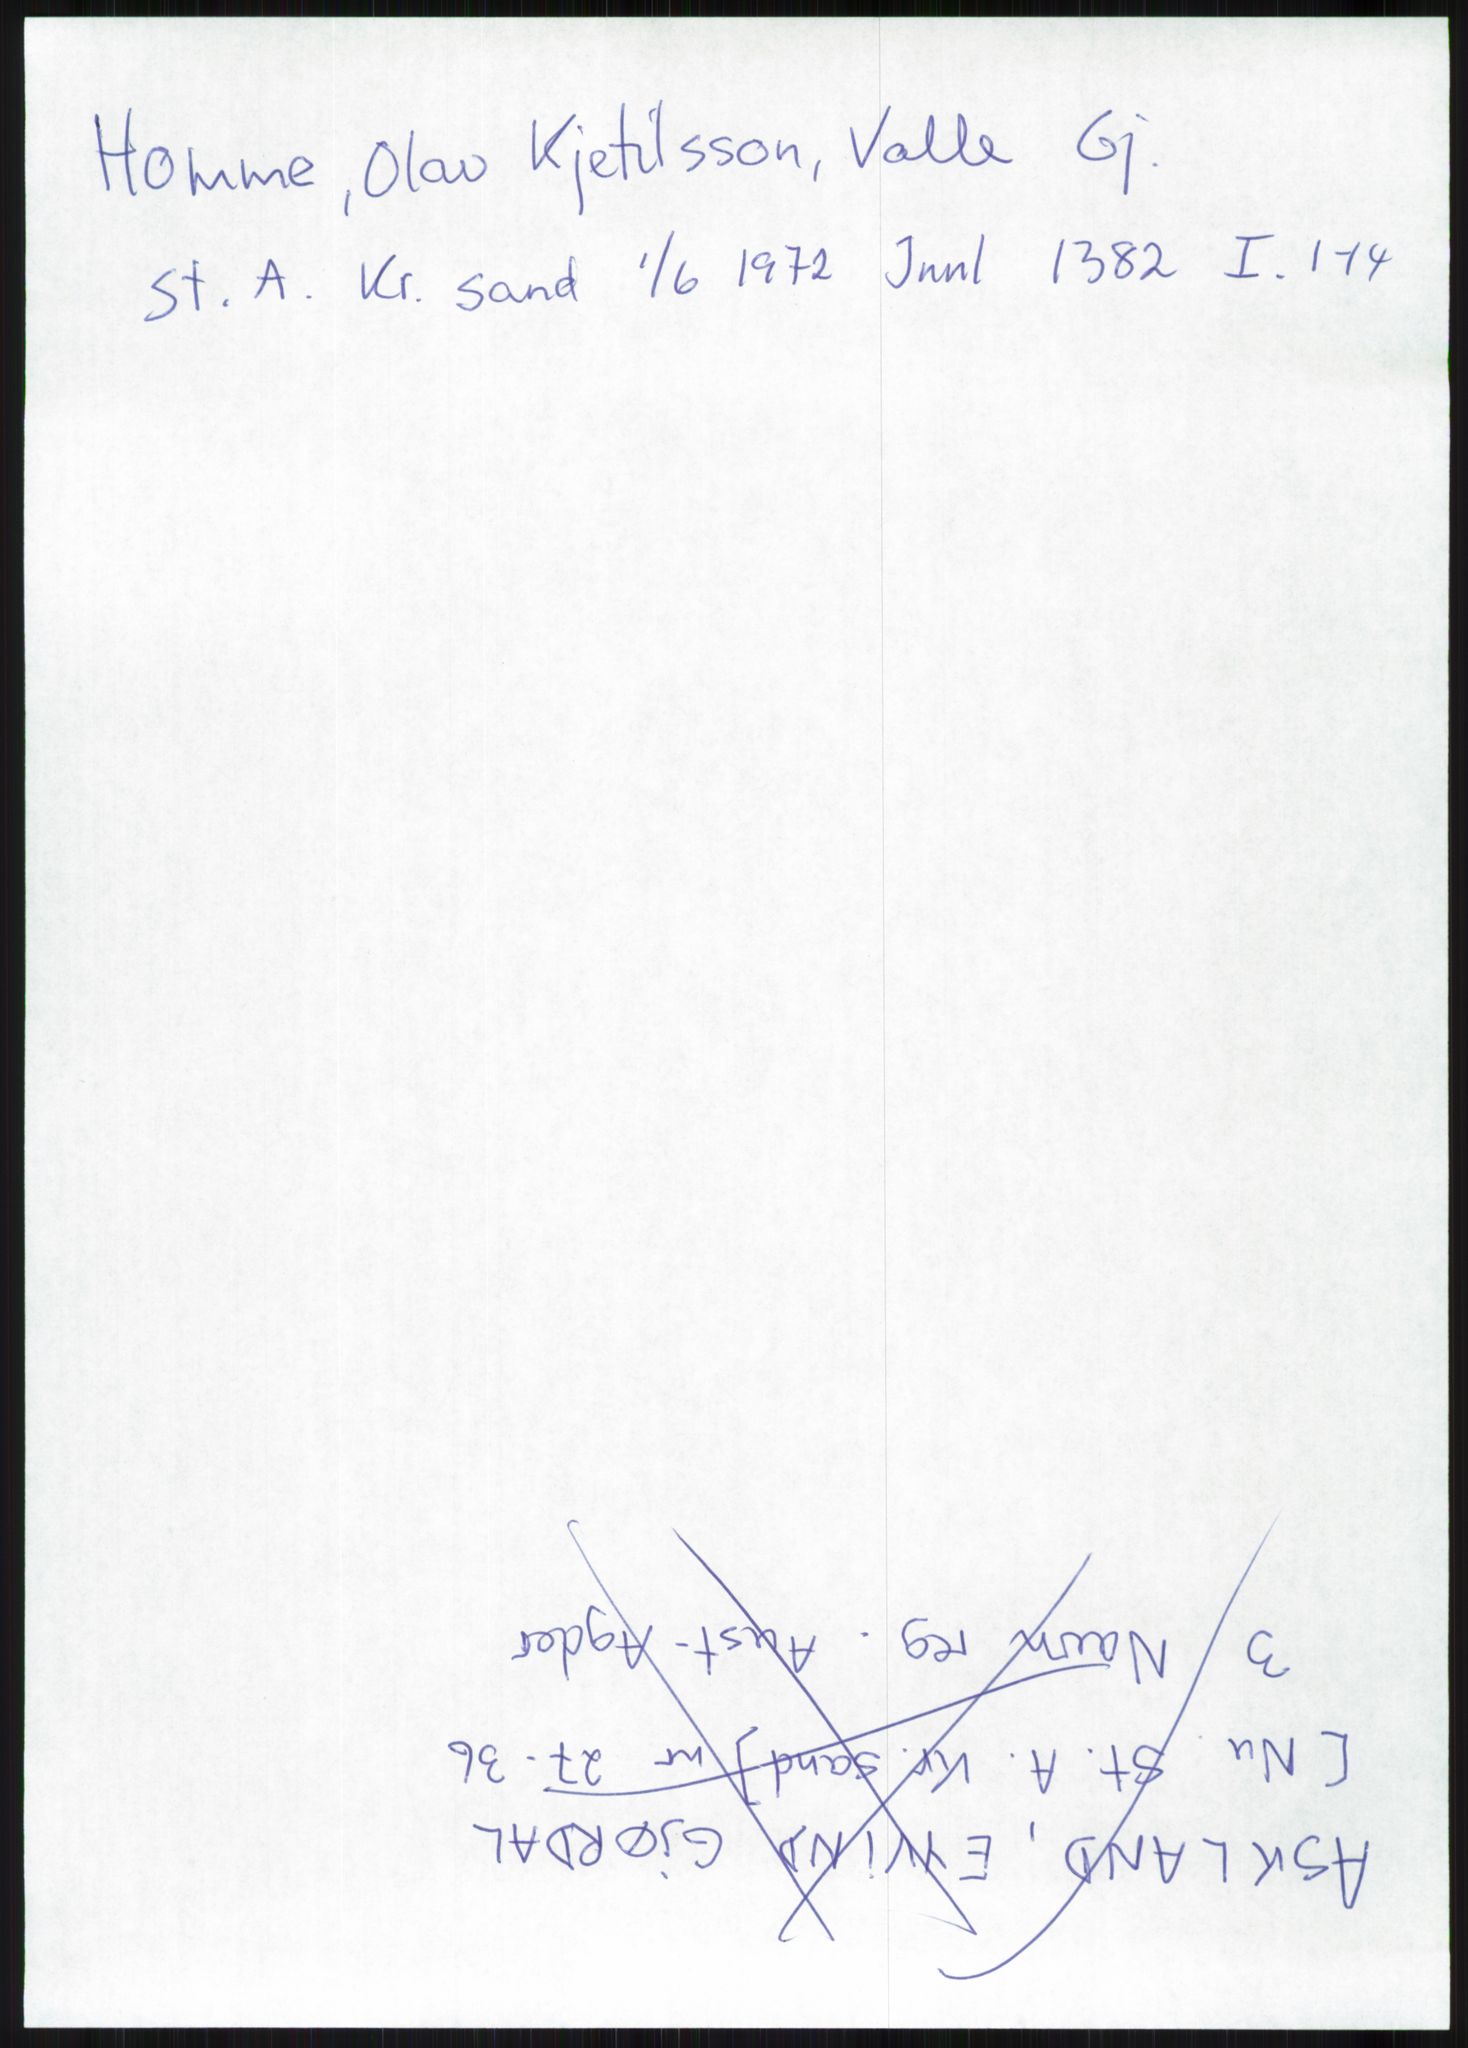 Homme, Olav Kjetilsson, Valle Gj.
St. A. Kr. sand 1/6 1972 Innl 1382 I. 1-14
ASKLAND, EYVIND GJØRDAL
[Nu. St. A. Kr. sand] nr 27-36
3 Navn reg. Aust-Agder